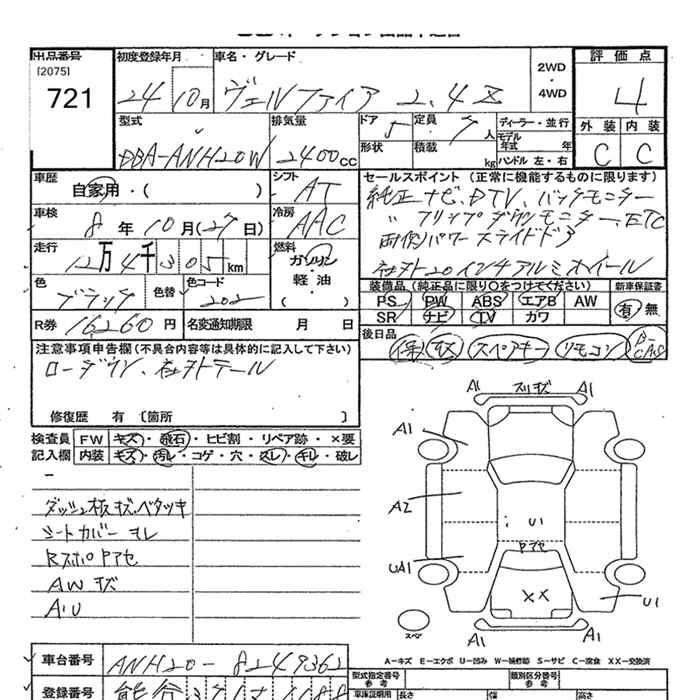 出品番号 初度登録年月 車名・グレード 2WD・4WD 評価点
[2075]
721 24 10月 ヴェルファイア 2.4Z 4
型式 排気量 ドア 定員 ディーラー・並行 外装 内装
DBA-ANH20W 2400cc 5 7人 モデル年式 年 C C
形状 積載 kg ハンドル 左・右
車歴 シフト セールスポイント (正常に機能するものに限ります)
自家用・( ) AT 純正ナビ、DTV、バックモニター
車検 冷房 〃 フリップダウンモニター、ETC
8年10月(27日) AAC 両側パワースライドドア
走行 燃料
12万4千305km ガソリン・軽油 社外20インチアルミホイール
( )
色 色替 色コード 装備品(純正品に限り○をつけてください) 新車保証書
ブラック 202 PS PW ABS エアB AW 有・無
R券 16260円 名変通知期限 月 日 SR ナビ TV カワ
後日品 保 取 スペアキー リモコン
注意事項申告欄(不具合内容等は具体的に記入して下さい)
ローダウン、社外テール
修復歴 有 [箇所 ]
検査員 FW キズ・飛石・ヒビ割・リペア跡・×要
記入欄 内装 キズ・汚レ・コゲ・穴・スレ・キレ・破レ
ダッシュ板キズ・ベタツキ
シートカバー ヨレ
RスポPアセ
AWキズ
A1U
A1 スリキズ A1
A1
A2 U1
Pアセ
UA1
XX U1
スペア A1 A1
A-キズ E-エクボ U-凹み W-補修跡 S-サビ C-腐食 XX-交換済
車台番号 ANH20-8249362
型式指定番号 類別区分番号
参考 参考
登録番号
車庫証明用 長さ 幅 高さ